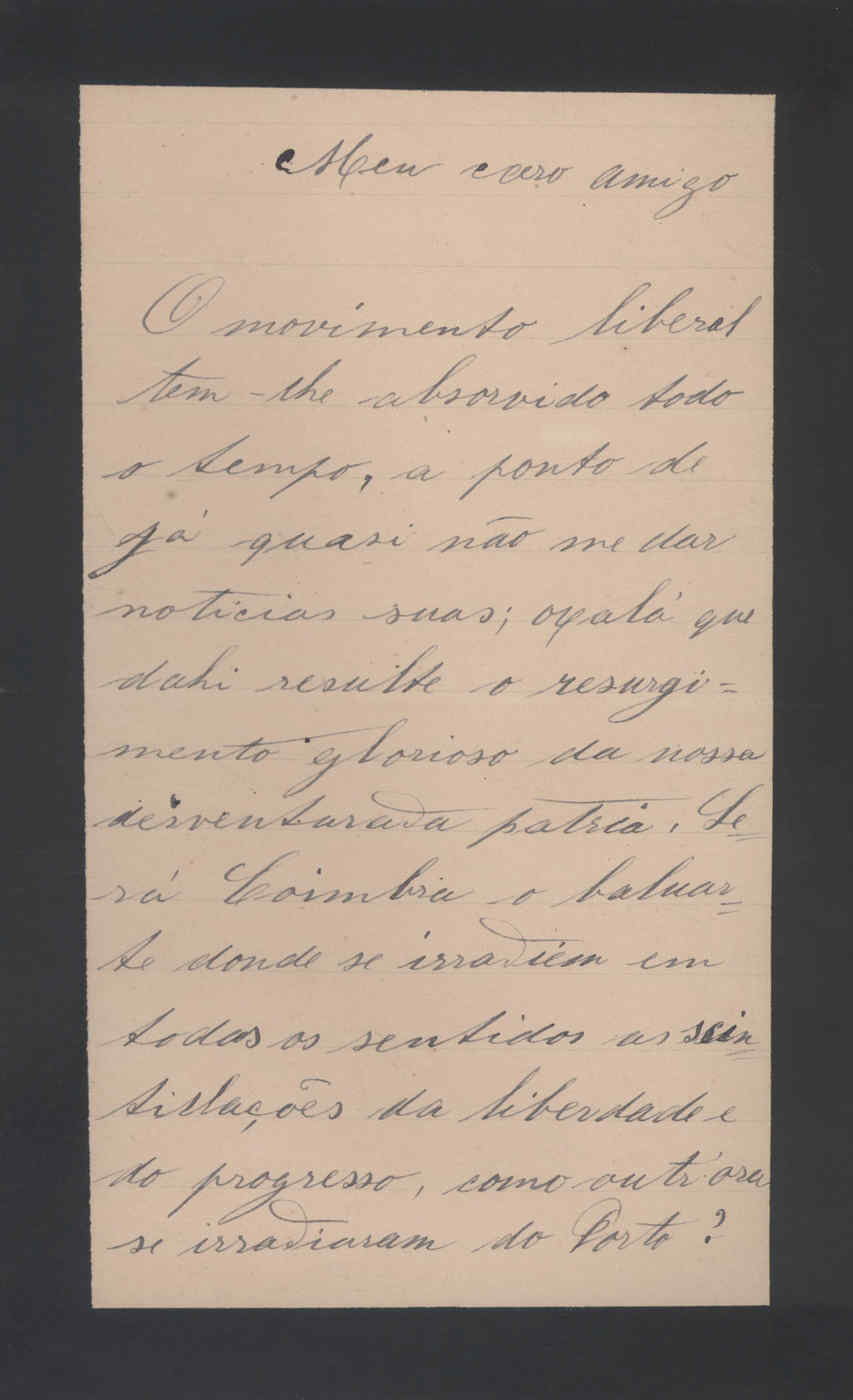 Meu caro amigo
O movimento liberal
tem-lhe absorvido todo
o tempo, a ponto de
já quasi não me dar
noticias suas; oxalá que
dahi resulte o resurgi=
mento glorioso da nossa
desventurada patria. Se=
rá Coimbra o baluar=
te donde se irradiem em
todos os sentidos as scin=
tillações da liberdade e
do progresso, como outr'ora
se irradiaram do Porto?